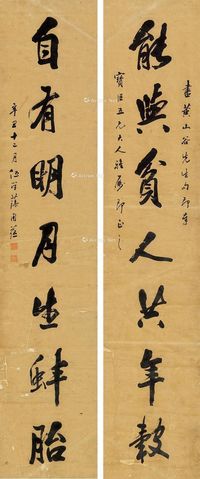 書黃山谷先生句即奉
能與貧人共年穀
寶臣五兄大人雅屬即正之
自有明月生蚌胎
辛丑十二月